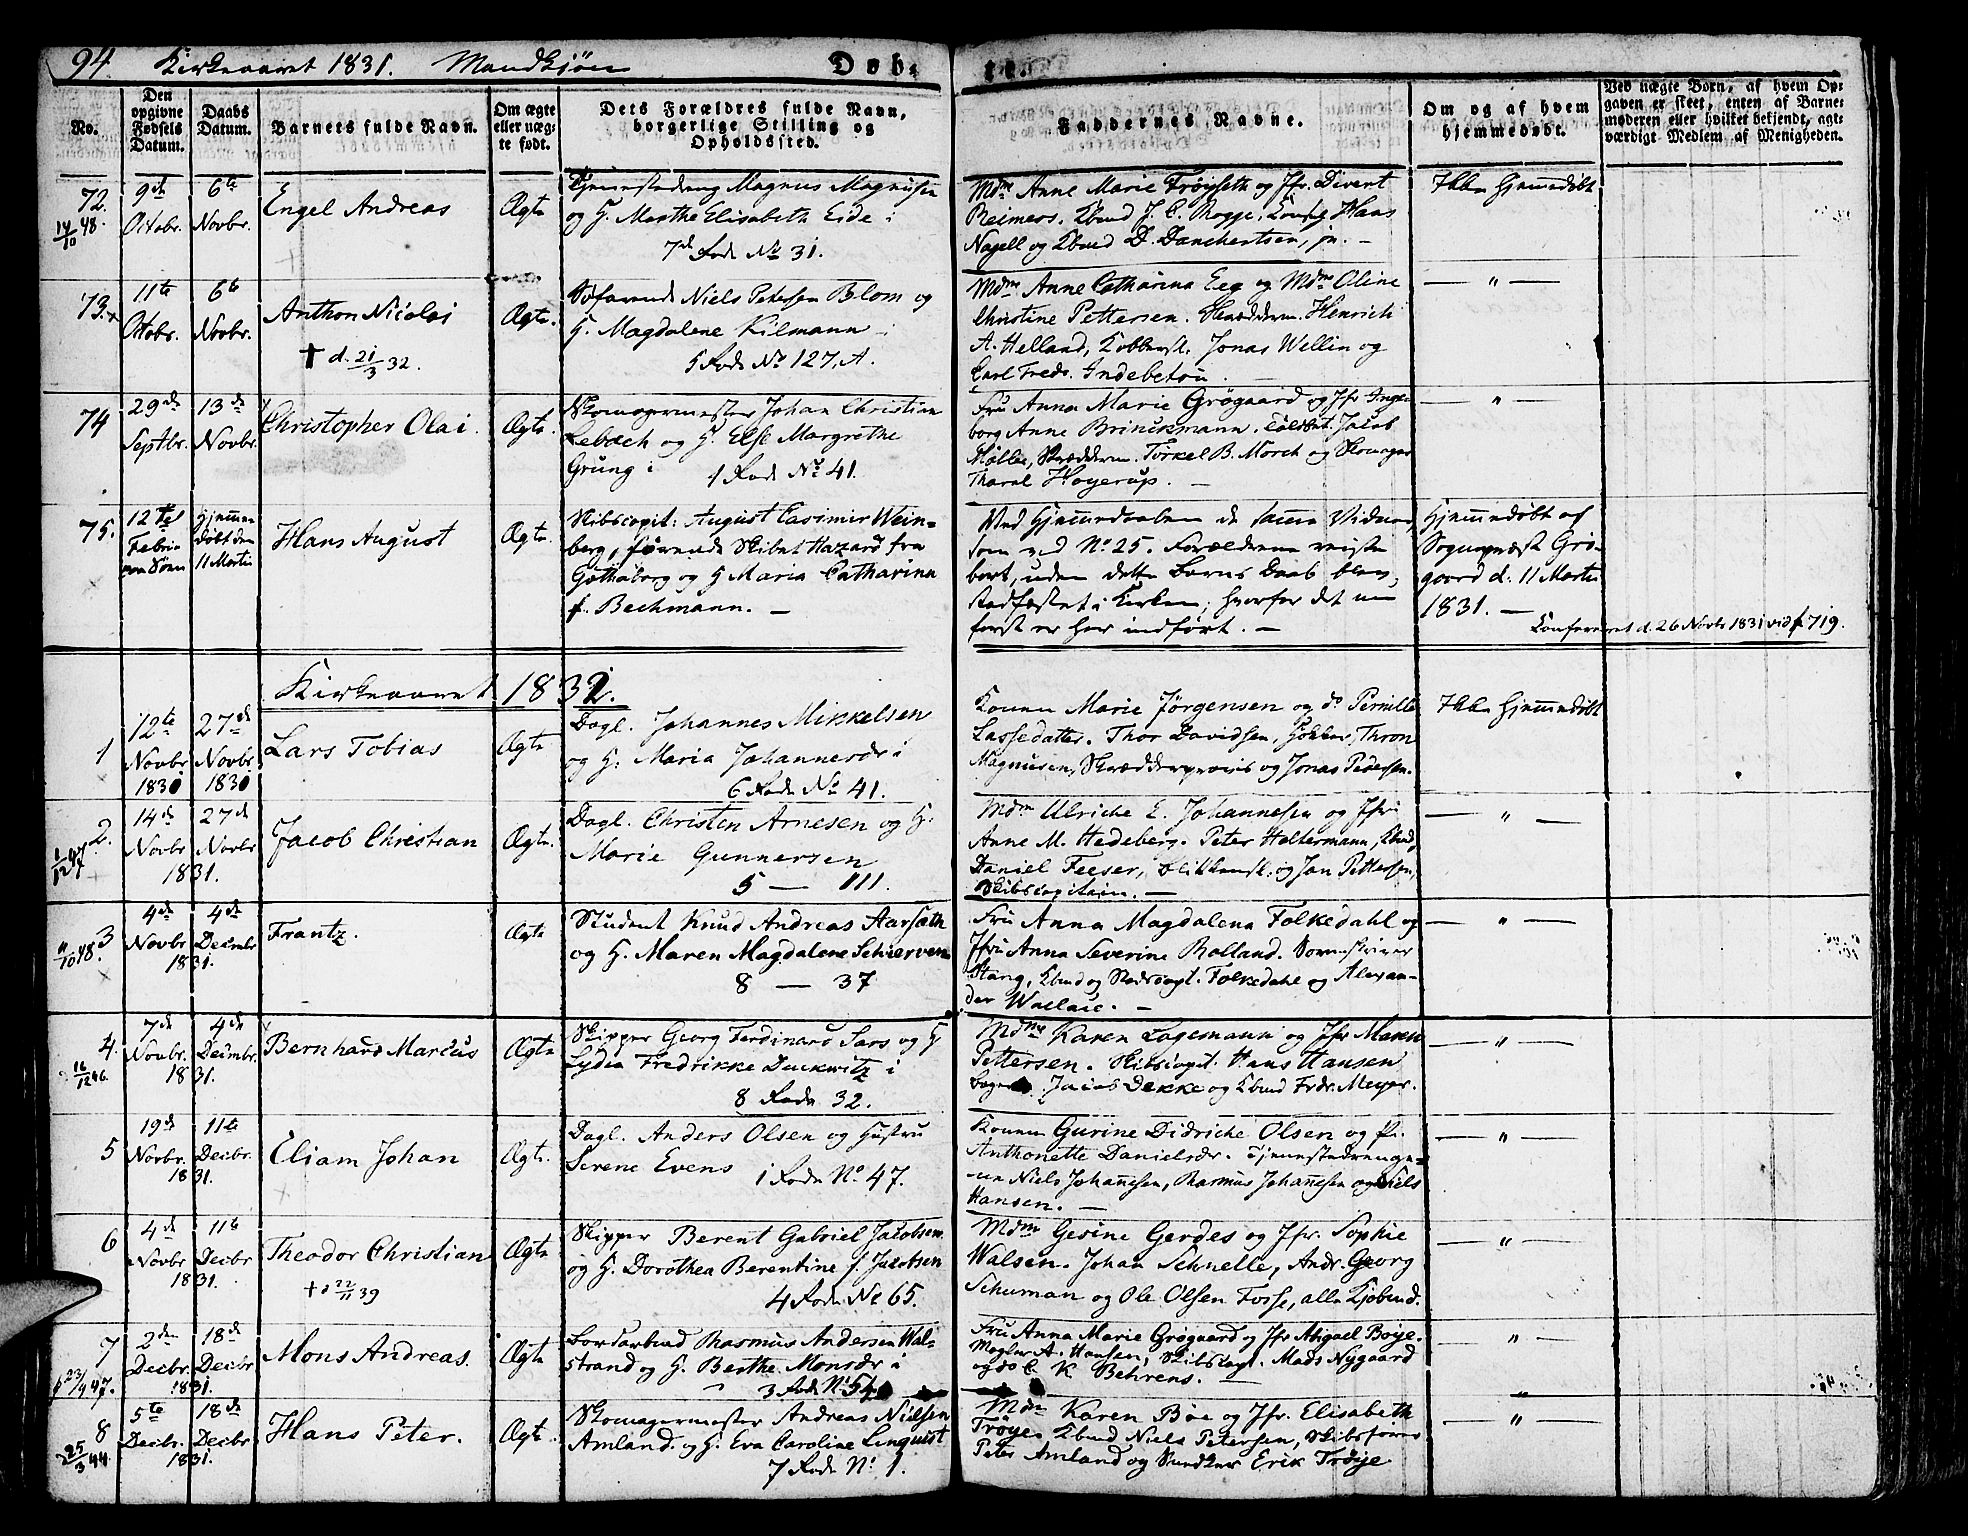 94. Kirkeaaret 1831. Mandkjön Döb- te.
No.
Den opgivne Fødsels Datum.
Daabs Datum.
Barnets fulde Navn.
Om ægte eller uæg- te født.
Dets Forældres fulde Navn, borgerlige Stilling og Opholdssted.
Faddernes Navne.
Om og af hvem hjemmedøbt.
Ved uægte Børn, af hvem Op-
gaven er skeet, enten af Barne-
moderen eller hvilket bekjendt, agt-
værdigt Medlem af Menigheden.
72.
14/10 48.
9de Octobr.
6te Novbr.
Engel Andreas
Ægte
Magnus Magnusen
og H. Marthe Elisabeth Eide i
7de Rode No 31.
Mdm Anne Marie Trøyseth og Jfr. Divert
Reimers. Kbmd J. C. Rogge, Hans
Nagell og Kbmd D. Danchertsen, jn. —
Ikke Hjemmedöbt
73.
11te Octobr.
6te Novbr.
Anthon Nicolai
† d. 21/3 32.
Ægte.
Søfarende Niels Petersen Blom og
H. Magdalene Kilmann i
5 Rode No 127, A.
Mdm Anne Catharina Eeg og Mdm Oline
Christine Pettersen. Skrædderm. Henrich
A. Helland, Kobbersl. Jonas Wellin og
Carl Fredr. Indebetou.
— " —
74
29de Septbr.
13de Novbr.
Christopher Olai.
Ægte.
Skomagermester Johan Christian
Lebach og H. Else Margrethe
Grung i 1 Rode No 41.
Fru Anna Marie Grøgaard og Jfr Inge-
borg Anne Brinckmann. Toldbet. Jacob
Møller, Skrædderm. Torkel B. Morch og Skomager
Tharal Høyerup. —
— " —
75.
12te Febru-
Hjemme-
døbt den
11 Martii
Hans August
Ægte.
Skibscapit: August Casimir Wein-
berg, førende Skibet Hazard fra
Gøthaborg og H Maria Catharina
f. Bechmann. —
Ved Hjemmedaaben de samme Vidner,
som ved No 25. Forældrene reiste
bort, uden dette Barns Daab blev
stadfæstet i Kirken; hvorfor det nu
først er her indført. —
Hjemmedöbt af
Sognepræst Grø-
gaard d. 11 Martii
1831. —
Confereret d. 26 Novbr 1831 vid f 719.
Kirkeaaret 1832.
1
12te Novbr 1830
27de Novbr 1830
Lars Tobias
Ægte
Dagl. Johannes Mikkelsen
og H. Maria Johannesdr i
6 Rode No 41.
Konen Marie Jørgensen og do Pernille
Lassedatter. Thor Davidsen, Thron
Magnusen, og Jonas Pedersen.
Ikke Hjemmedöbt
2.
1/12 47
14de Novbr
27de Novbr
1831.
Jacob Christian
Ægte.
Dagl. Christen Arnesen og H.
Marie Gunnersen
5 — 111.
Mdm Ulriche E. Johannesen og Jfr:
Anne M. Hedeberg. Peter Holtermann, Kbmd,
Daniel Feeser, Blikkensl. og Jan Pettersen,
Skibscapitain. —
— " —
3
11/10 48.
4de Novbr
4de Decmbr
1831.
Frantz.
Ægte
Student Knud Andreas Aarsæth
og H. Maren Magdalene Schierven
8 — 37
Fru Anna Magdalena Folkedahl og
Jfru Anna Severine Rolland. Sorenskriver
Stang, Kbmd og Folkedahl og Alexan-
der Wallace. —
— " —
4.
16/12 46.
7de Novbr.
4de Decmbr.
1831.
Bernhard Marcus
Ægte
Skipper Georg Ferdinard Sars og H
Lydia Fredrikke Duckwitz i
8 Rode 32.
Mdme Karen Lagemann og Jfr Maren
Pettersen. Skibscapt. Hans Hansen
Jacob Dekke og Kbmd Frdr. Meyer.
— " —
5
19de Novbr.
11te Decbr.
1831.
Eliam Johan
Ægte.
Dagl. Anders Olsen og Hustru
Serene Evens 1 Rode No. 47.
Konen Gurine Didriche Olsen og Pi.
Anthonette Danielsdr. Tjenestedrenge-
ne Niels Johannesen, Rasmus Johannesen og Niels
Hansen. —
— " —
6
4de Novbr
11te Decbr
1831.
Theodor Christian
† d 22/11 39
Ægte
Skipper Berent Gabriel Jacobsen
og H. Dorothea Berentine f. Jacobsen
4 Rode No 65.
Mdm Gesine Gerdes og Jfr. Sophie
Walsen. Johan Schnelle, Andr. Georg
Schuman og Ole Olsen Fosse, alle Kjøbmd.
— " —
7
23/9 47.
2den Decbr.
18de Decbr
1831.
Mons Andreas.
Ægte
Rasmus Andersen Wal-
strand og H. Berthe Monsdr i
3 Rode No 54
Fru Anna Marie Grøgaard og Jfr Abigael Bøye.
Mægler A. Hansen, Skibscapt. Mads Nygaard
og do C. K Behrens. —
— " —
8
25/3 44.
5te Decbr.
18de Decbr
1831.
Hans Peter.
Ægte.
Skomagermester Andreas Nielsen
Amland. og H. Eva Caroline Linquist
7 Rode No. 1.
Mdm Karen Bøe og Jfr. Elisabeth
Trøye. Kbmd Niels Petersen, Skibsfører
Peter Amland og Erik Trøye
— " —